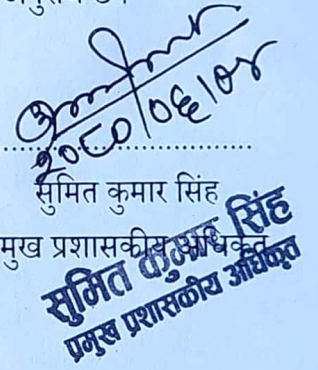 २०८०/०६/०४
सुमित कुमार सिंह
मुख प्रशासकीय अधिकृत
सुमित कुमार सिंह
प्रमुख प्रशासकीय अधिकृत